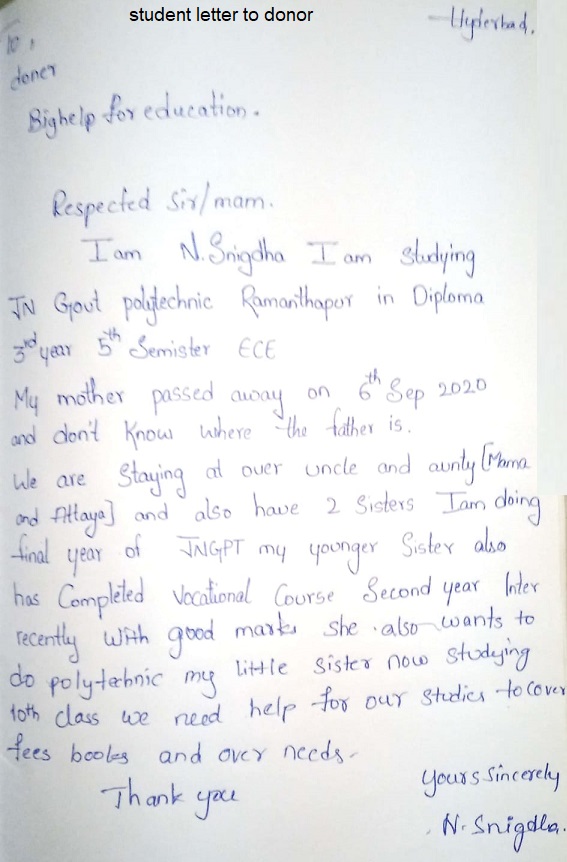 student letter to donor
—Hyderbad.
To,
doner
Bighelp for education.
Respected Sir/mam.
I am N.Snigdha I am studying
JN Govt polytechnic Ramanthapur in Diploma
3rd year 5th Semister ECE
My mother passed away on 6th Sep 2020
and don't know where the father is.
We are Staying at over uncle and aunty [Mama
and Attaya] and also have 2 Sisters I am doing
final year of JNGPT my younger Sister also
has Completed Vocational Course Second year Inter
recently with good marks she also wants to
do polytechnic my little sister now studying
10th class we need help for our studies to cover
fees books and over needs.
Thank you
yours sincerely
N. Snigdha.